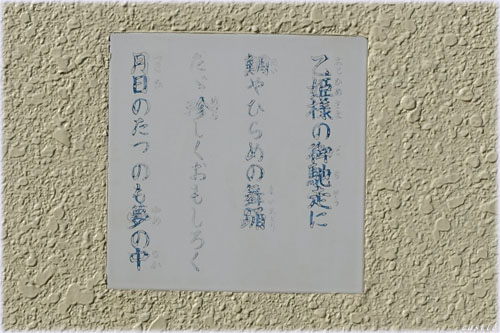 乙姫様の御馳走に
鯛やひらめの舞踊
ただ珍しくおもしろく
月日のたつのも夢の中